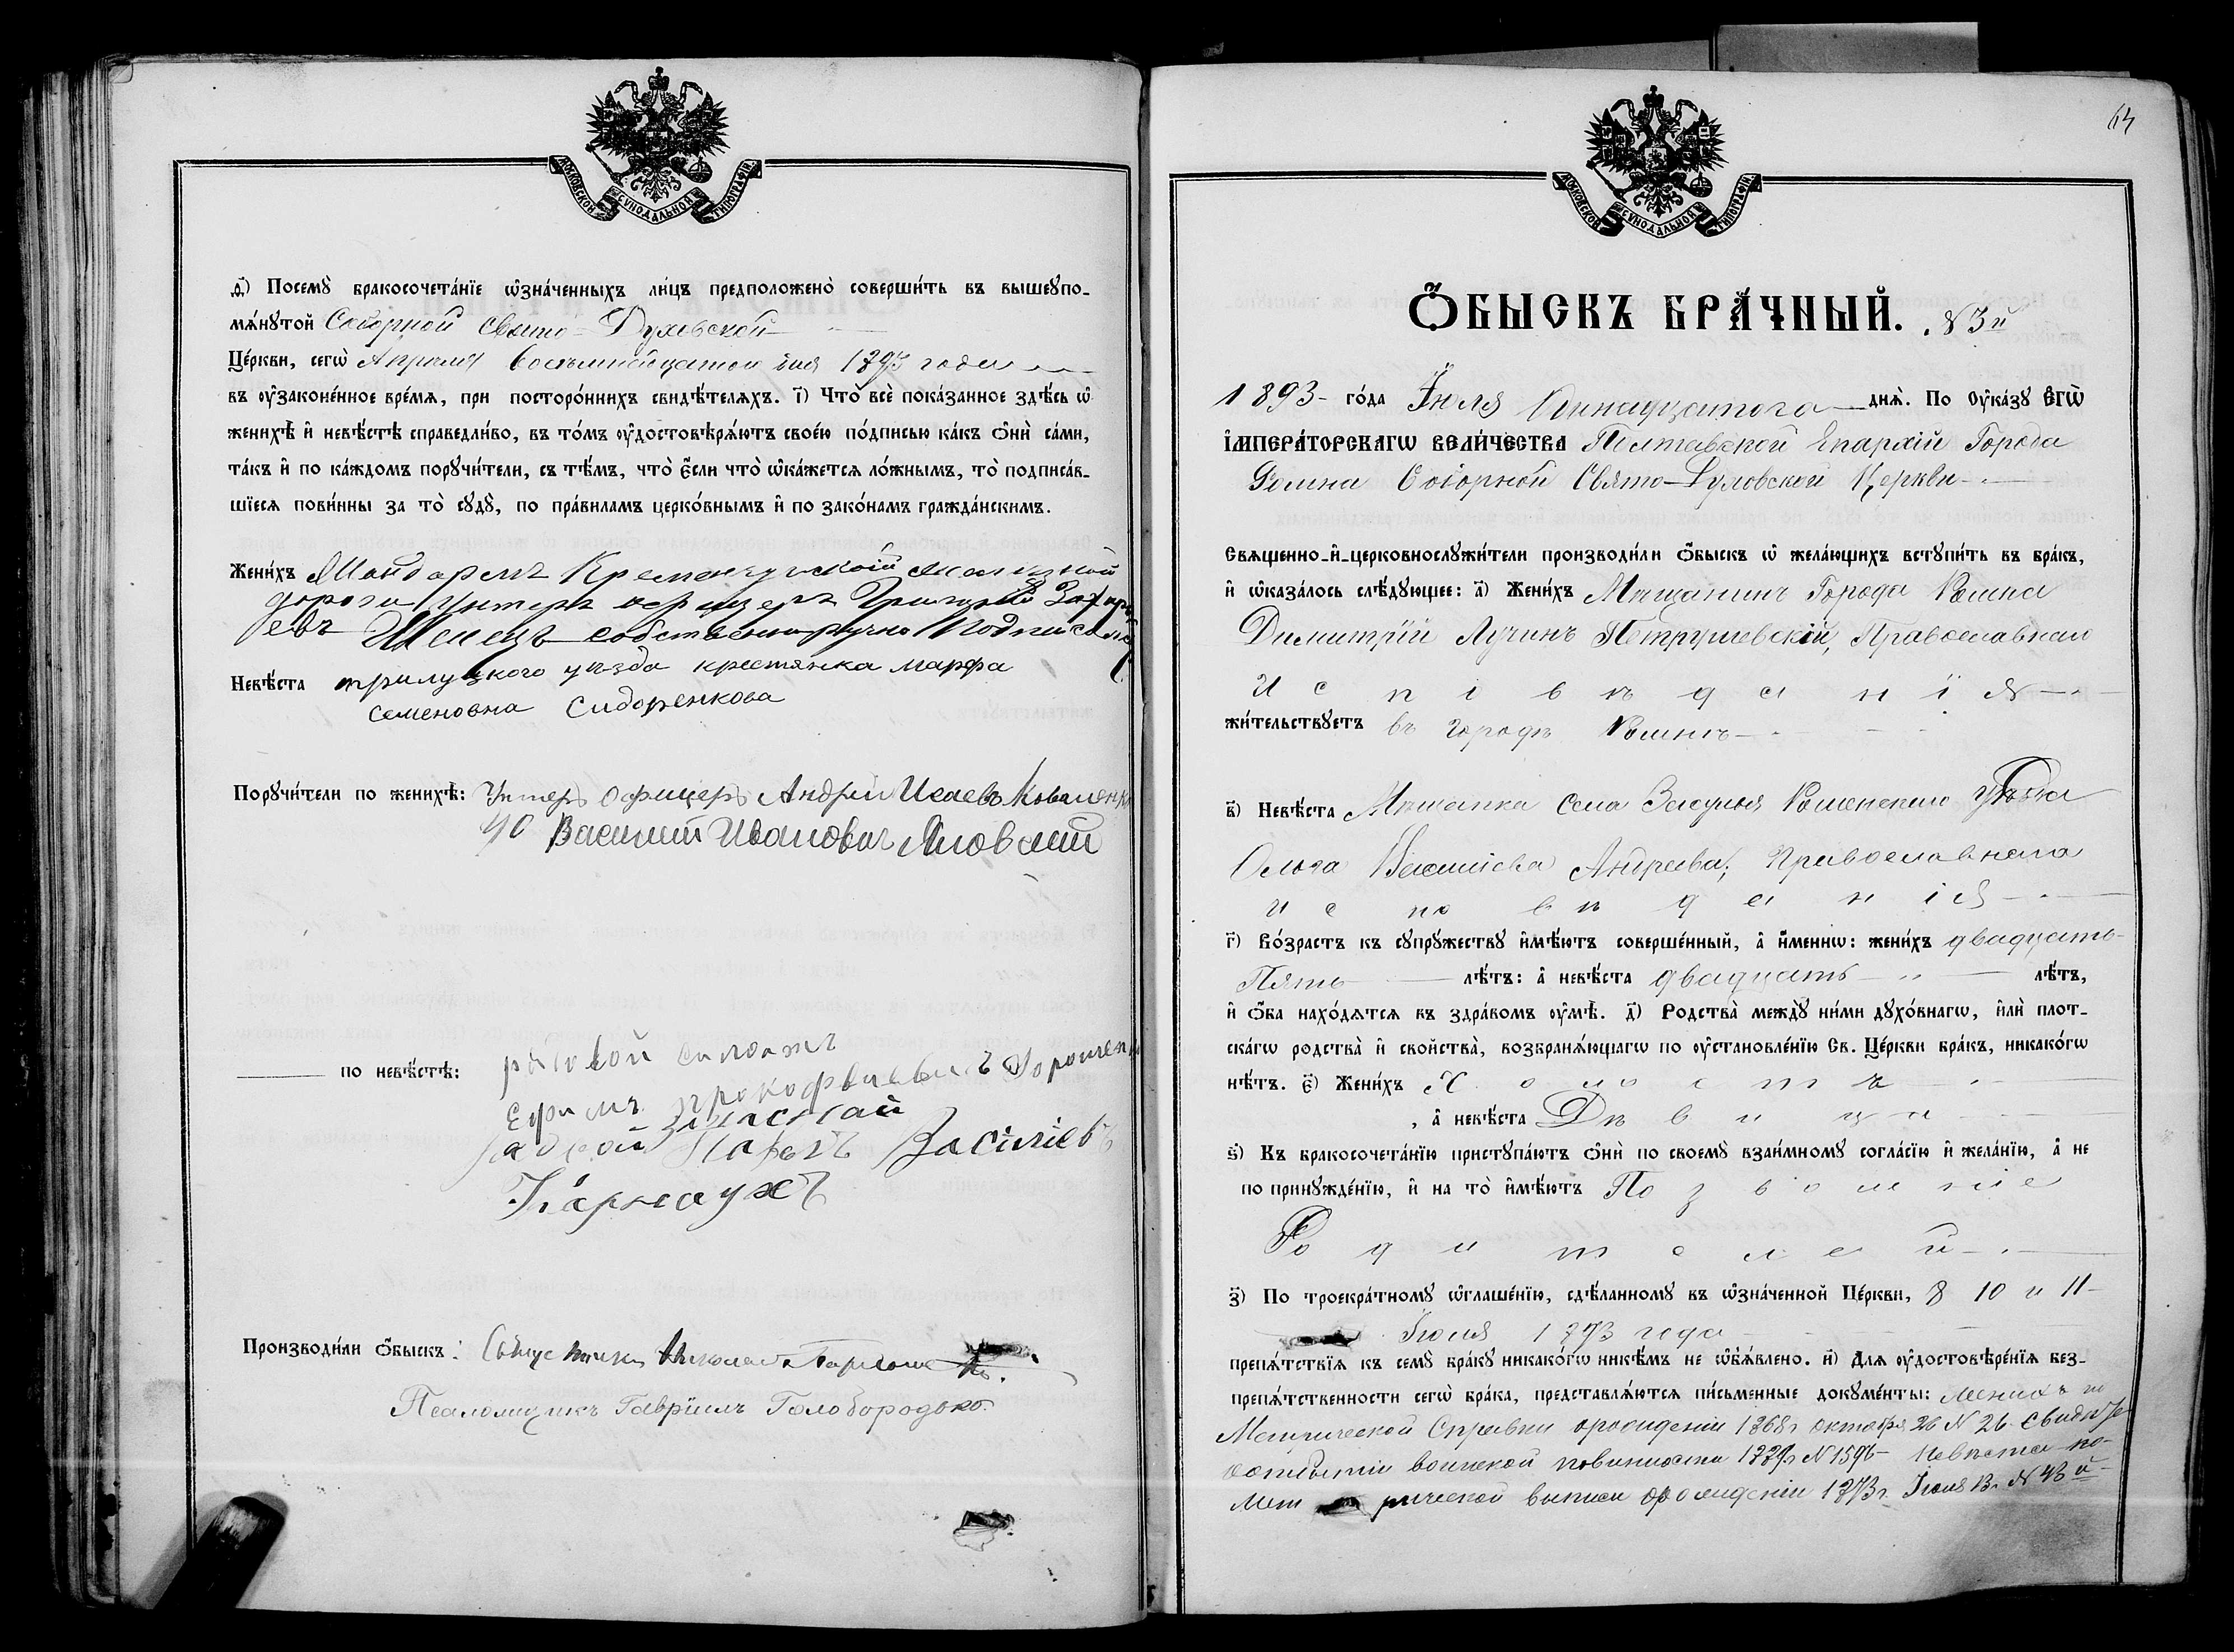 МОСКОВСКОЙ СѴНОДАЛЬНОЙ ТИПОГРАФІИ.
д҃) Посемꙋ̀ бракосочета́нїе ѡ҆зна́ченныхъ ли́цъ предположено̀ соверши́ть въ вышеꙋпо-
мѧ́нꙋтой Соборной Свято-Духовской
Це́ркви, сегѡ̀ Апрѣля восьмнадцатого дня 1893 года
въ ᲂу҆законе́нное вре́мѧ, при посторо́ннихъ свидѣ́телѧхъ. і҃) Что̀ всѐ пока́занное здѣ́сь ѡ҆
женихѣ̀ и҆ невѣ́стѣ справедли́во, въ то́мъ ᲂу҆достовѣрѧ́ютъ свое́ю по́дписью ка́къ ѻ҆нѝ са́ми,
та́къ и҆ по ка́ждомъ порꙋчи́тели, съ тѣ́мъ, что̀ є҆́сли что̀ ѡ҆ка́жетсѧ ло́жнымъ, то̀ подписа́в-
шїесѧ пови́нны за то̀ сꙋдꙋ̀, по пра́виламъ церко́внымъ и҆ по зако́намъ гражда́нскимъ.
Жени́хъ Жандармъ Кременчугской железной
дороги Унтеръ офицеръ Григорій Захарь
евъ собственноручно подписался
Невѣ́ста прилуцкого уѣзда крестянка марфа
семеновна Сидоренкова
Порꙋчи́тели по женихѣ̀: Унтеръ Офицеръ Андрей Исаевъ Коваленко
У/О Василий Ивановичъ Яновский
по невѣ́стѣ: рядовой
Ефимъ прокофьевичъ Дорошенко
рядовой Павелъ Васілієвъ
Карнаухъ
Производи́ли ѻ҆́быскъ: Священникъ Николай
Псаломщикъ Гавріилъ Голобородько.
64
МОСКОВСКОЙ СѴНОДАЛЬНОЙ ТИПОГРАФІИ.
Ѻ҆́БЫСКЪ БРА́ЧНЫЙ. № 3й
1893 - го́да Іюля Одинадцатого днѧ̀. По ᲂу҆ка́зꙋ Є҆ГѠ̀
І҆МПЕРА́ТОРСКАГѠ ВЕЛИ́ЧЕСТВА Полтавской Епархіи Города
Ромна Соборной Свято-Духовской Церкви
Свѧщенно-и҆-церковнослꙋжи́тели производи́ли ѻ҆́быскъ ѡ҆ жела́ющихъ встꙋпи́ть въ бра́къ,
и҆ ѡ҆каза́лось слѣ́дꙋющее: а҃) Жени́хъ Мѣщанинъ Города Ромна
Димитрій Лучинъ Петрушевскій, Православнаго
Исповѣданія
жи́тельствꙋетъ въ городѣ Ромнѣ
в҃) Невѣ́ста Мѣщанка села Засулья Роменского Уѣзда
Ольга Василіева Андреева, Православнаго
исповѣданія
г҃) Во́зрастъ къ сꙋпрꙋ́жествꙋ и҆мѣ́ютъ соверше́нный, а҆ и҆́менно: жени́хъ двадцать
Пять лѣ́тъ: а҆ невѣ́ста двадцать лѣ́тъ,
и҆ ѻ҆́ба нахо́дѧтсѧ въ здра́вомъ ᲂу҆мѣ̀. д҃) Родства̀ междꙋ̀ ни́ми дꙋхо́внагѡ, и҆лѝ плот-
ска́гѡ родства̀ и҆ сво́йства̀, возбранѧ́ющагѡ по ᲂу҆становле́нїю Св. Це́ркви бра́къ, никако́гѡ
нѣ́тъ. є҃) Жени́хъ Холостъ
, а҆ невѣ́ста Дѣвица
ѕ҃) Къ бракосочета́нїю пристꙋпа́ютъ ѻ҆нѝ по своемꙋ̀ взаи́мномꙋ согла́сїю и҆ жела́нїю, а҆ не
по принꙋжде́нїю, и҆ на то̀ и҆мѣ́ютъ Позволеніе
Родителей
з҃) По троекра́тномꙋ ѡ҆глаше́нїю, сдѣ́ланномꙋ въ ѡ҆зна́ченной Це́ркви, 8 10 и 11-
Іюля 1893 года
препѧ́тствїѧ къ семꙋ̀ бра́кꙋ никако́гѡ никѣ́мъ не ѡ҆б̾ѧ́влено. и҃) Длѧ ᲂу҆достовѣре́нїѧ без-
препѧ́тственности сегѡ̀ бра́ка, представлѧ́ютсѧ пи́сьменные докꙋме́нты: женихъ по
Метрической Справки орождении 1868г октября 26 № 26.
воинской повинности № 1596 - Невѣста по-
мет рической выписи орождении 1873г. Іюля